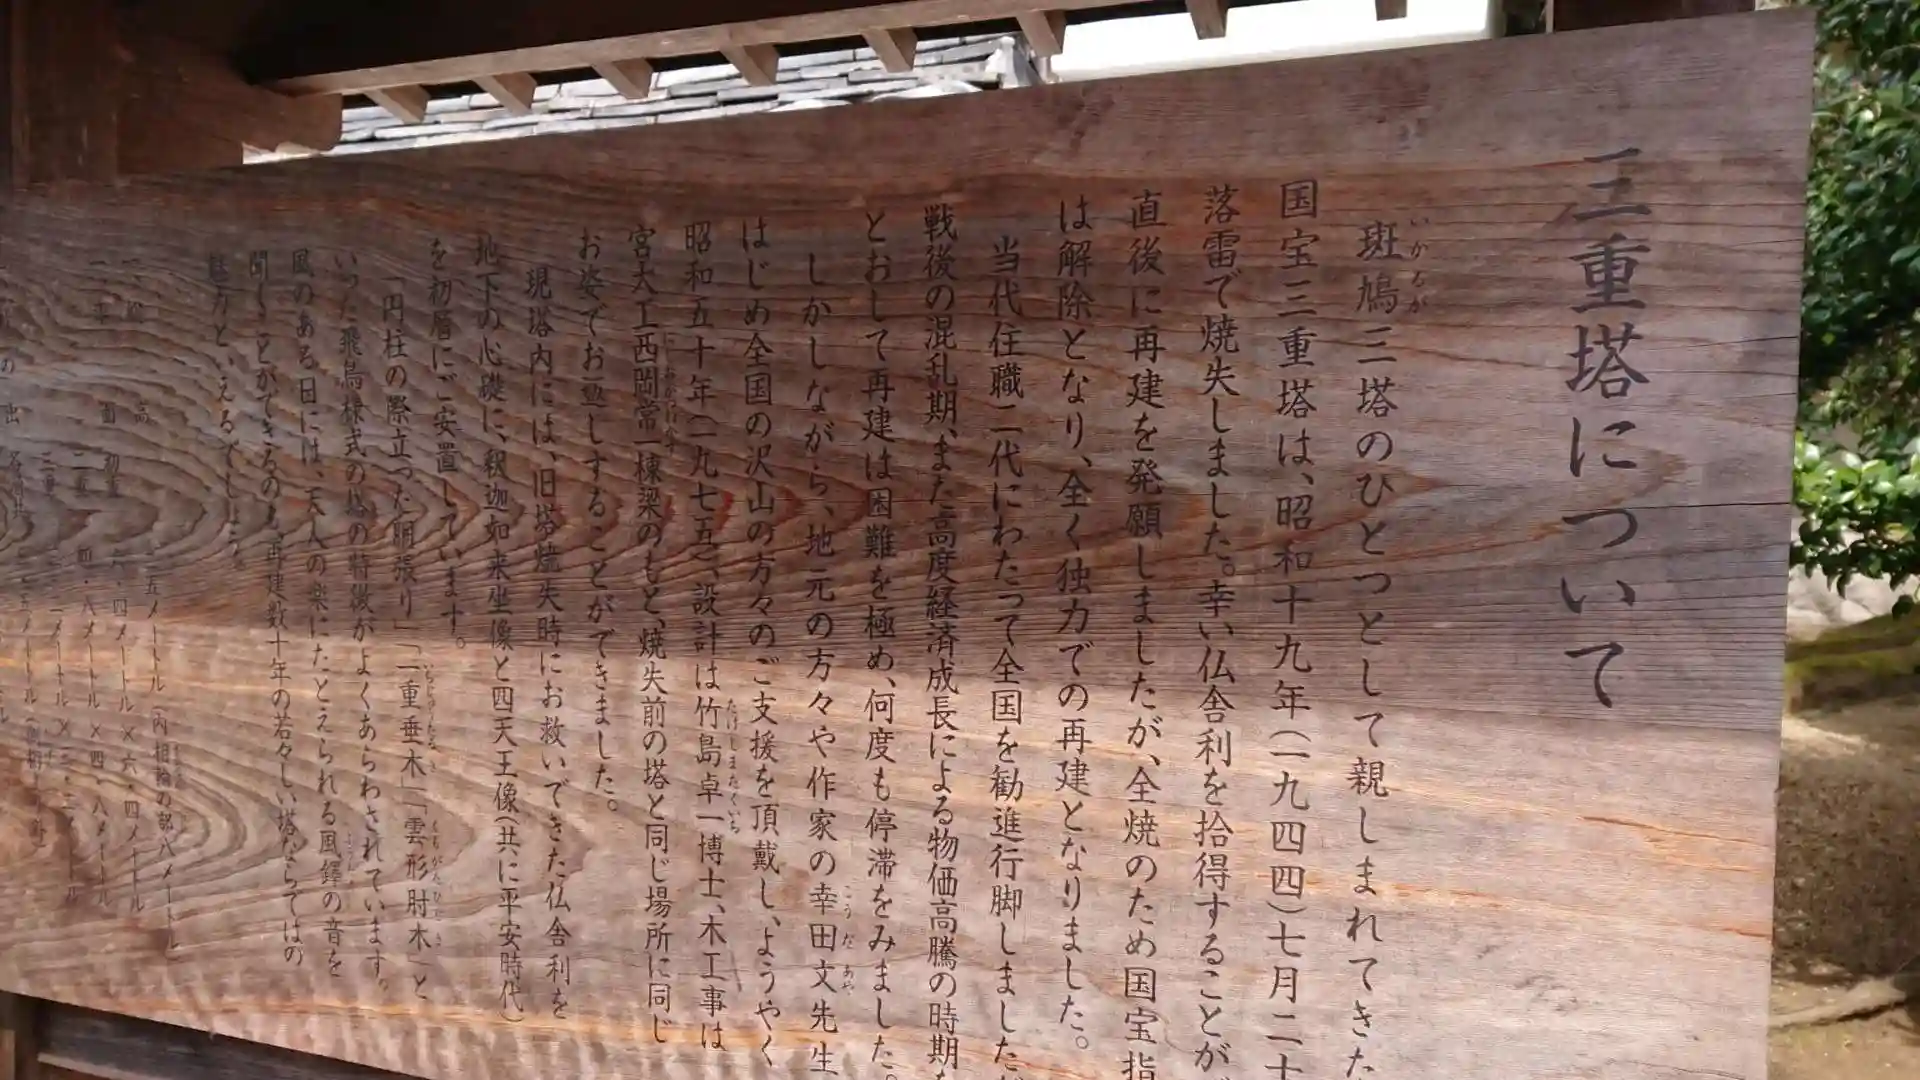 三重塔について
斑鳩三塔のひとつとして親しまれてきた
いかるが
国宝三重塔は、昭和十九年(一九四四)七月二十
落雷で焼失しました。幸い仏舎利を拾得することが
直後に再建を発願しましたが、全焼のため国宝指
は解除となり、全く独力での再建となりました。
当代住職二代にわたって全国を勧進行脚しましたが
戦後の混乱期、また高度経済成長による物価高騰の時期を
とおして再建は困難を極め、何度も停滞をみました。
しかしながら、地元の方々や作家の幸田文先生
こうだ あや
はじめ全国の沢山の方々のご支援を頂戴し、ようやく
昭和五十年(一九七五)、設計は竹島卓一博士、木工事は
たけしまたくいち
宮大工西岡常一棟梁のもと、焼失前の塔と同じ場所に同じ
お姿でお塾しすることができました。
現塔内には、旧塔焼失時にお救いできた仏舎利を
地下の心礎に、釈迦如来坐像と四天王像(共に平安時代)
を初層にご安置しています。
「円柱の際立った胴張り」「一重垂木」「雲形肘木」と
いった飛鳥様式の塔の特徴がよくあらわされています。
風のある日には、天人の楽にたとえられる風鐸の音を
聞くことができるのも、再建数十年の若々しい塔ならではの
魅力といえるでしょう。
高 五メートル(内相輪の部八メートル
初重 六・四メートル×六・四メートル
二重 四・八メートル×四・八メートル
三重
の 出